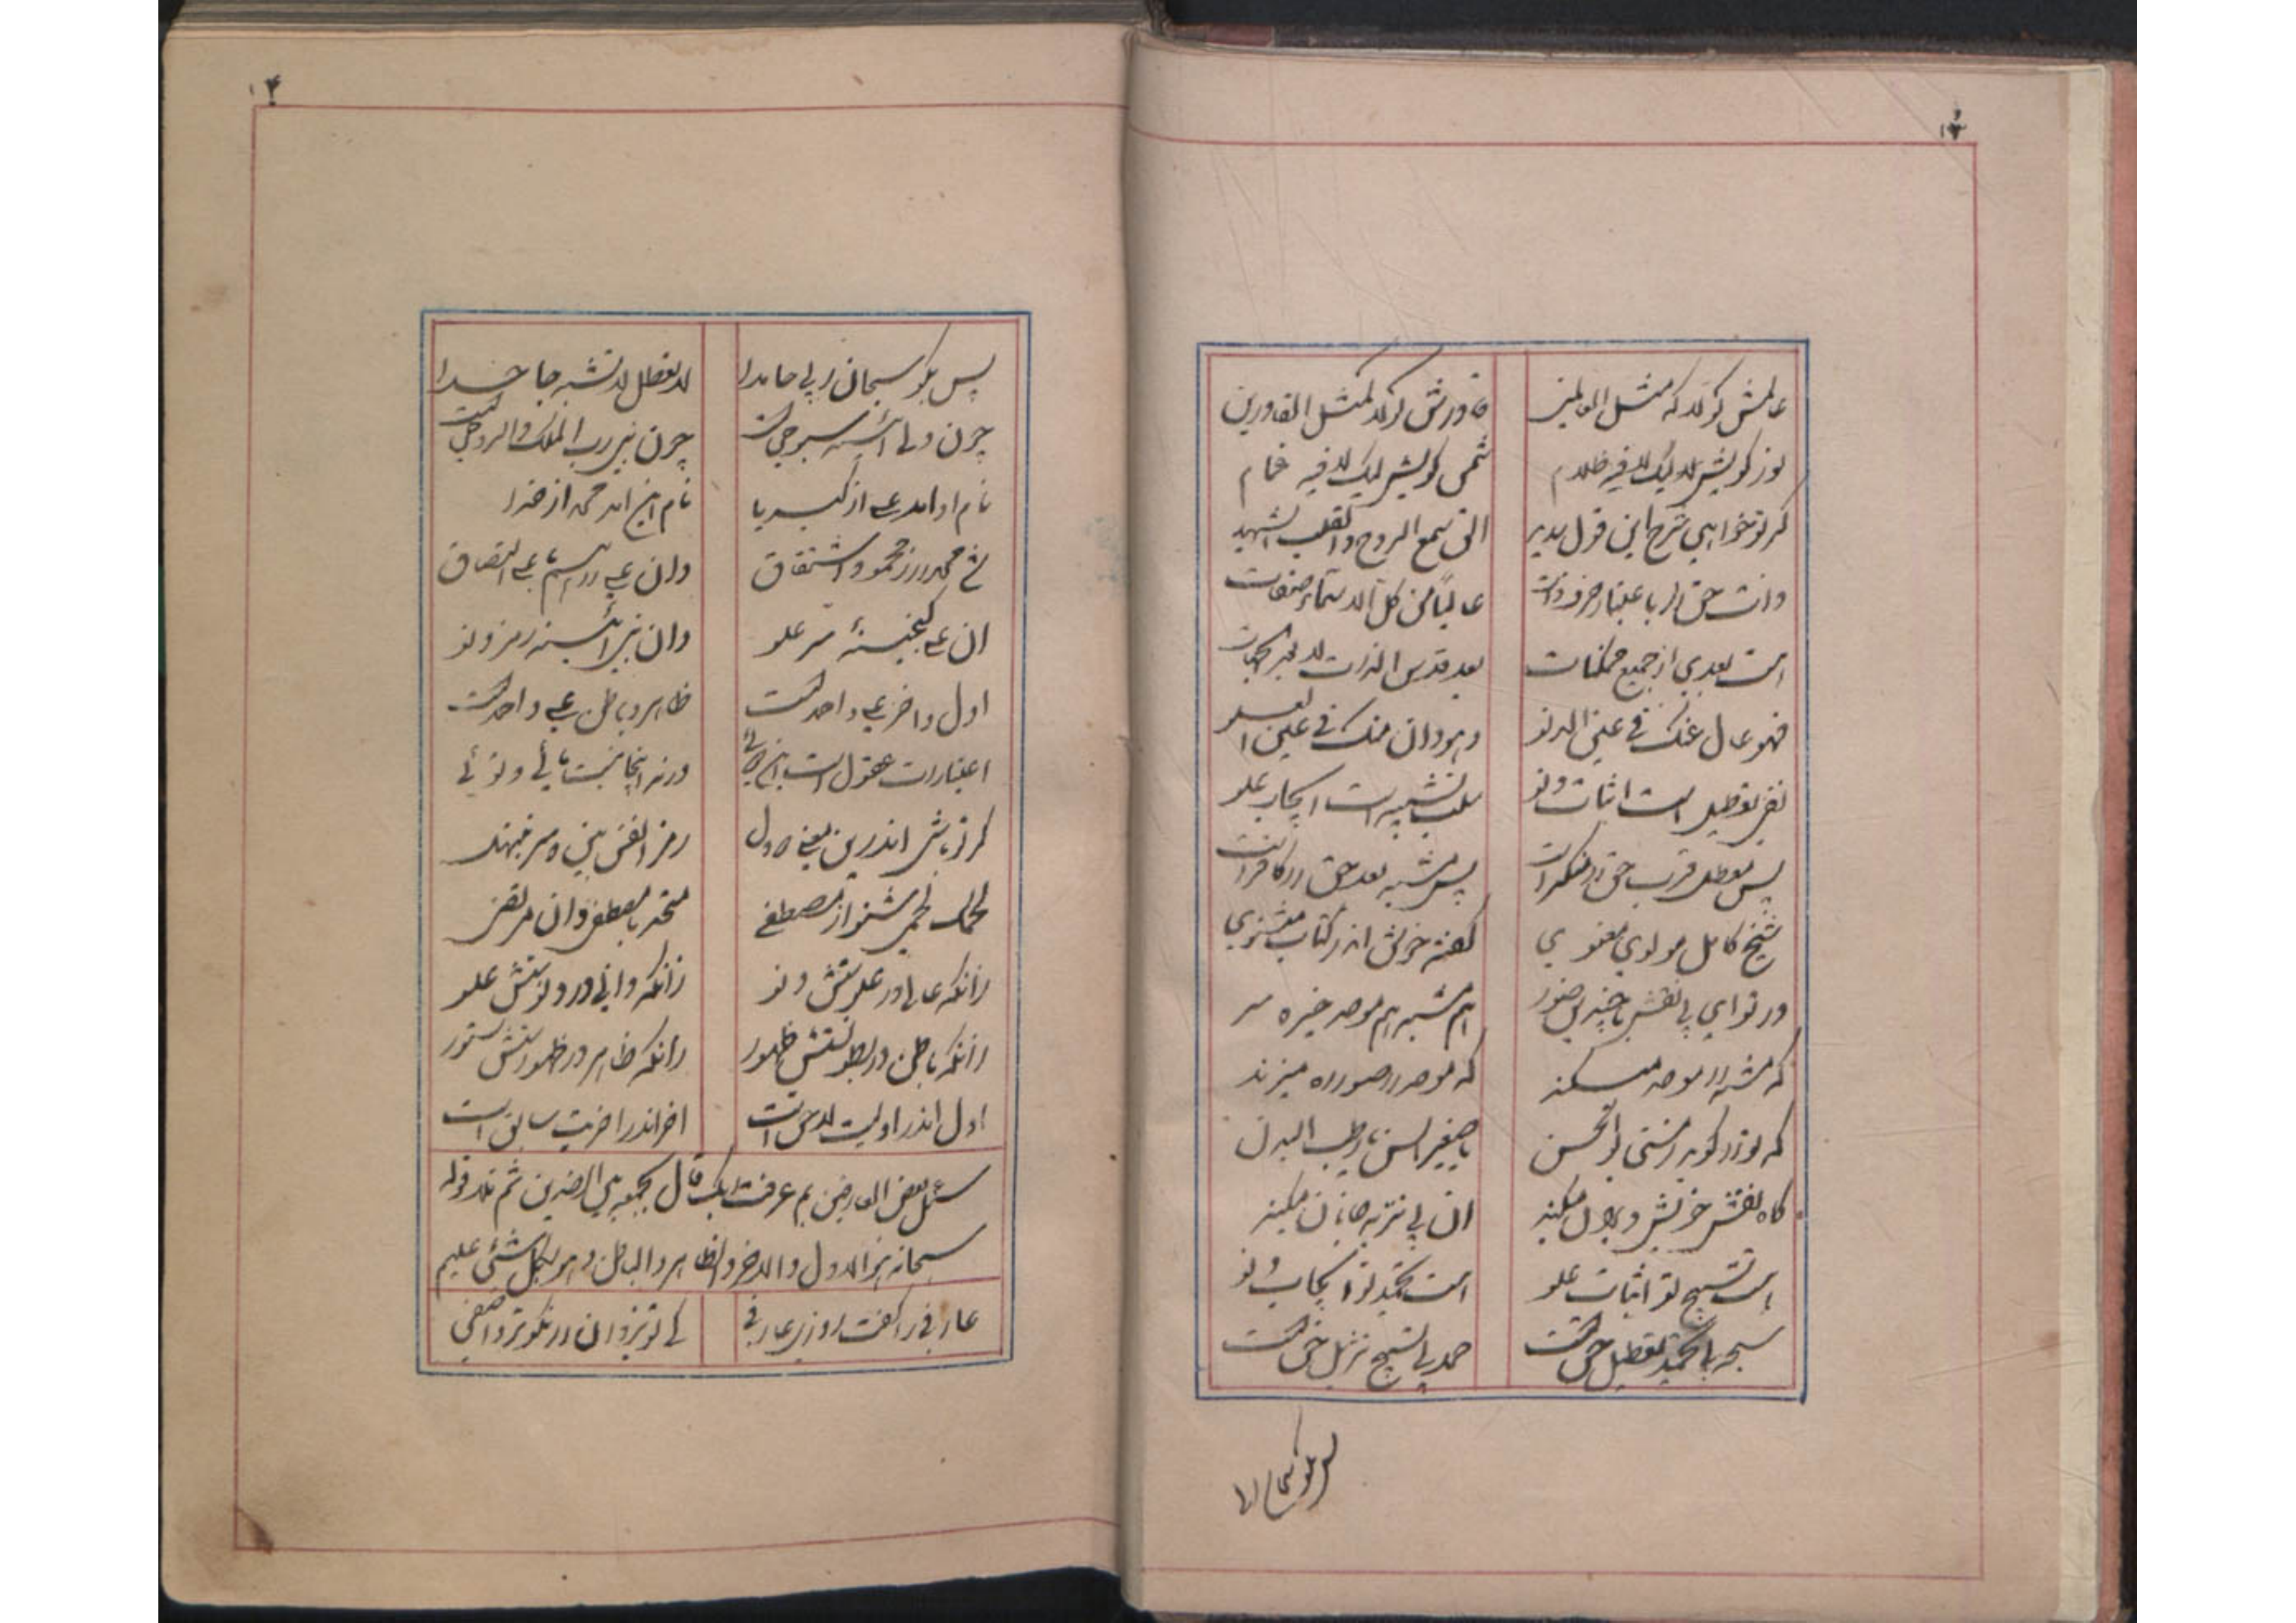 ۱۳
عالمش گو لا که مثل العالمین قادرش گو لا کمثل القادرین
نور گویش لا ولیک لا فیه ظلام شمس گویش لیک لا فیه غمام
گر تو خواهی شرح این قول سدید الق سمع الروح والقلب الشهید
ذات حق را باعتبار صرف ذات عالیا من کل الاسماء وصفات
است بعدی از جمیع ممکنات بعد قدس الذات لا بعد الجهات
فهو عال عنک فی عین الدنو وهو دان منک فی عین العلو
نفی تعطیل است اثبات دنو سلب تشبیه است ایجاب علو
پس معطل قرب حق را منکر است پس مشبه بعد حق را کافر است
شیخ کامل مولوی معنوی گفته خوش اندر کتاب مثنوی
از تو ای بی نقش با چندین صور هم مشبه هم موحد خیره سر
که مشبه را موحد میکند که موحد را صور ره میزند
که تو را گوید ز مستی بوالحسن یا صغیر السن یا رطب البدن
گاه نقش خویش ویران میکند آن پی تنزیه جانان میکند
هست تسبیح تو اثبات علو هست تحمید تو ایجاب دنو
سبحه بی تحمید تعطیل حق است حمد بی تسبیح تمثیل حق است
پس بگو سبحان ربی
۱۴
پس بگو سبحان ربی حامدا لا تعطل لا تشبه جاحدا
چون ولی آئینه سبوحی است چون نبی رب الملک والروحی است
نام او آمد علی از کبریا نام این آمد محمد از خدا
شد محمد را ز محمود اشتقاق وان علی را اسم اعلی التصاق
آن علی گنجینه سر علو وان نبی آئینه رمز دنو
اول و آخر علی واحد است ظاهر و باطن علی واحد است
اعتبارات عقول است این دوئی ورنه اینجا نیست مائی و توئی
گر تو باشی اندرین معنی ودل رمز انفس بین و سر
لحمک لحمی شنو از مصطفی متحد با مصطفی دان مرتضی
زانکه عالی در علوستش دنو زانکه دانی در دنوستش علو
زانکه باطن در بطونستش ظهور زانکه ظاهر در ظهورستش ستور
اول اندر اولیت لاحق است آخر اندر آخریت سابق است
سئل بعض العارفین بم عرفت ربک قال بجمعه بین الضدین ثم تلا قوله
سبحانه هو الاول والاخر والظاهر والباطن وهو بکل شئی علیم
عارفی را گفت روزی عارفی کی تو یزدان را نکوتر واصفی